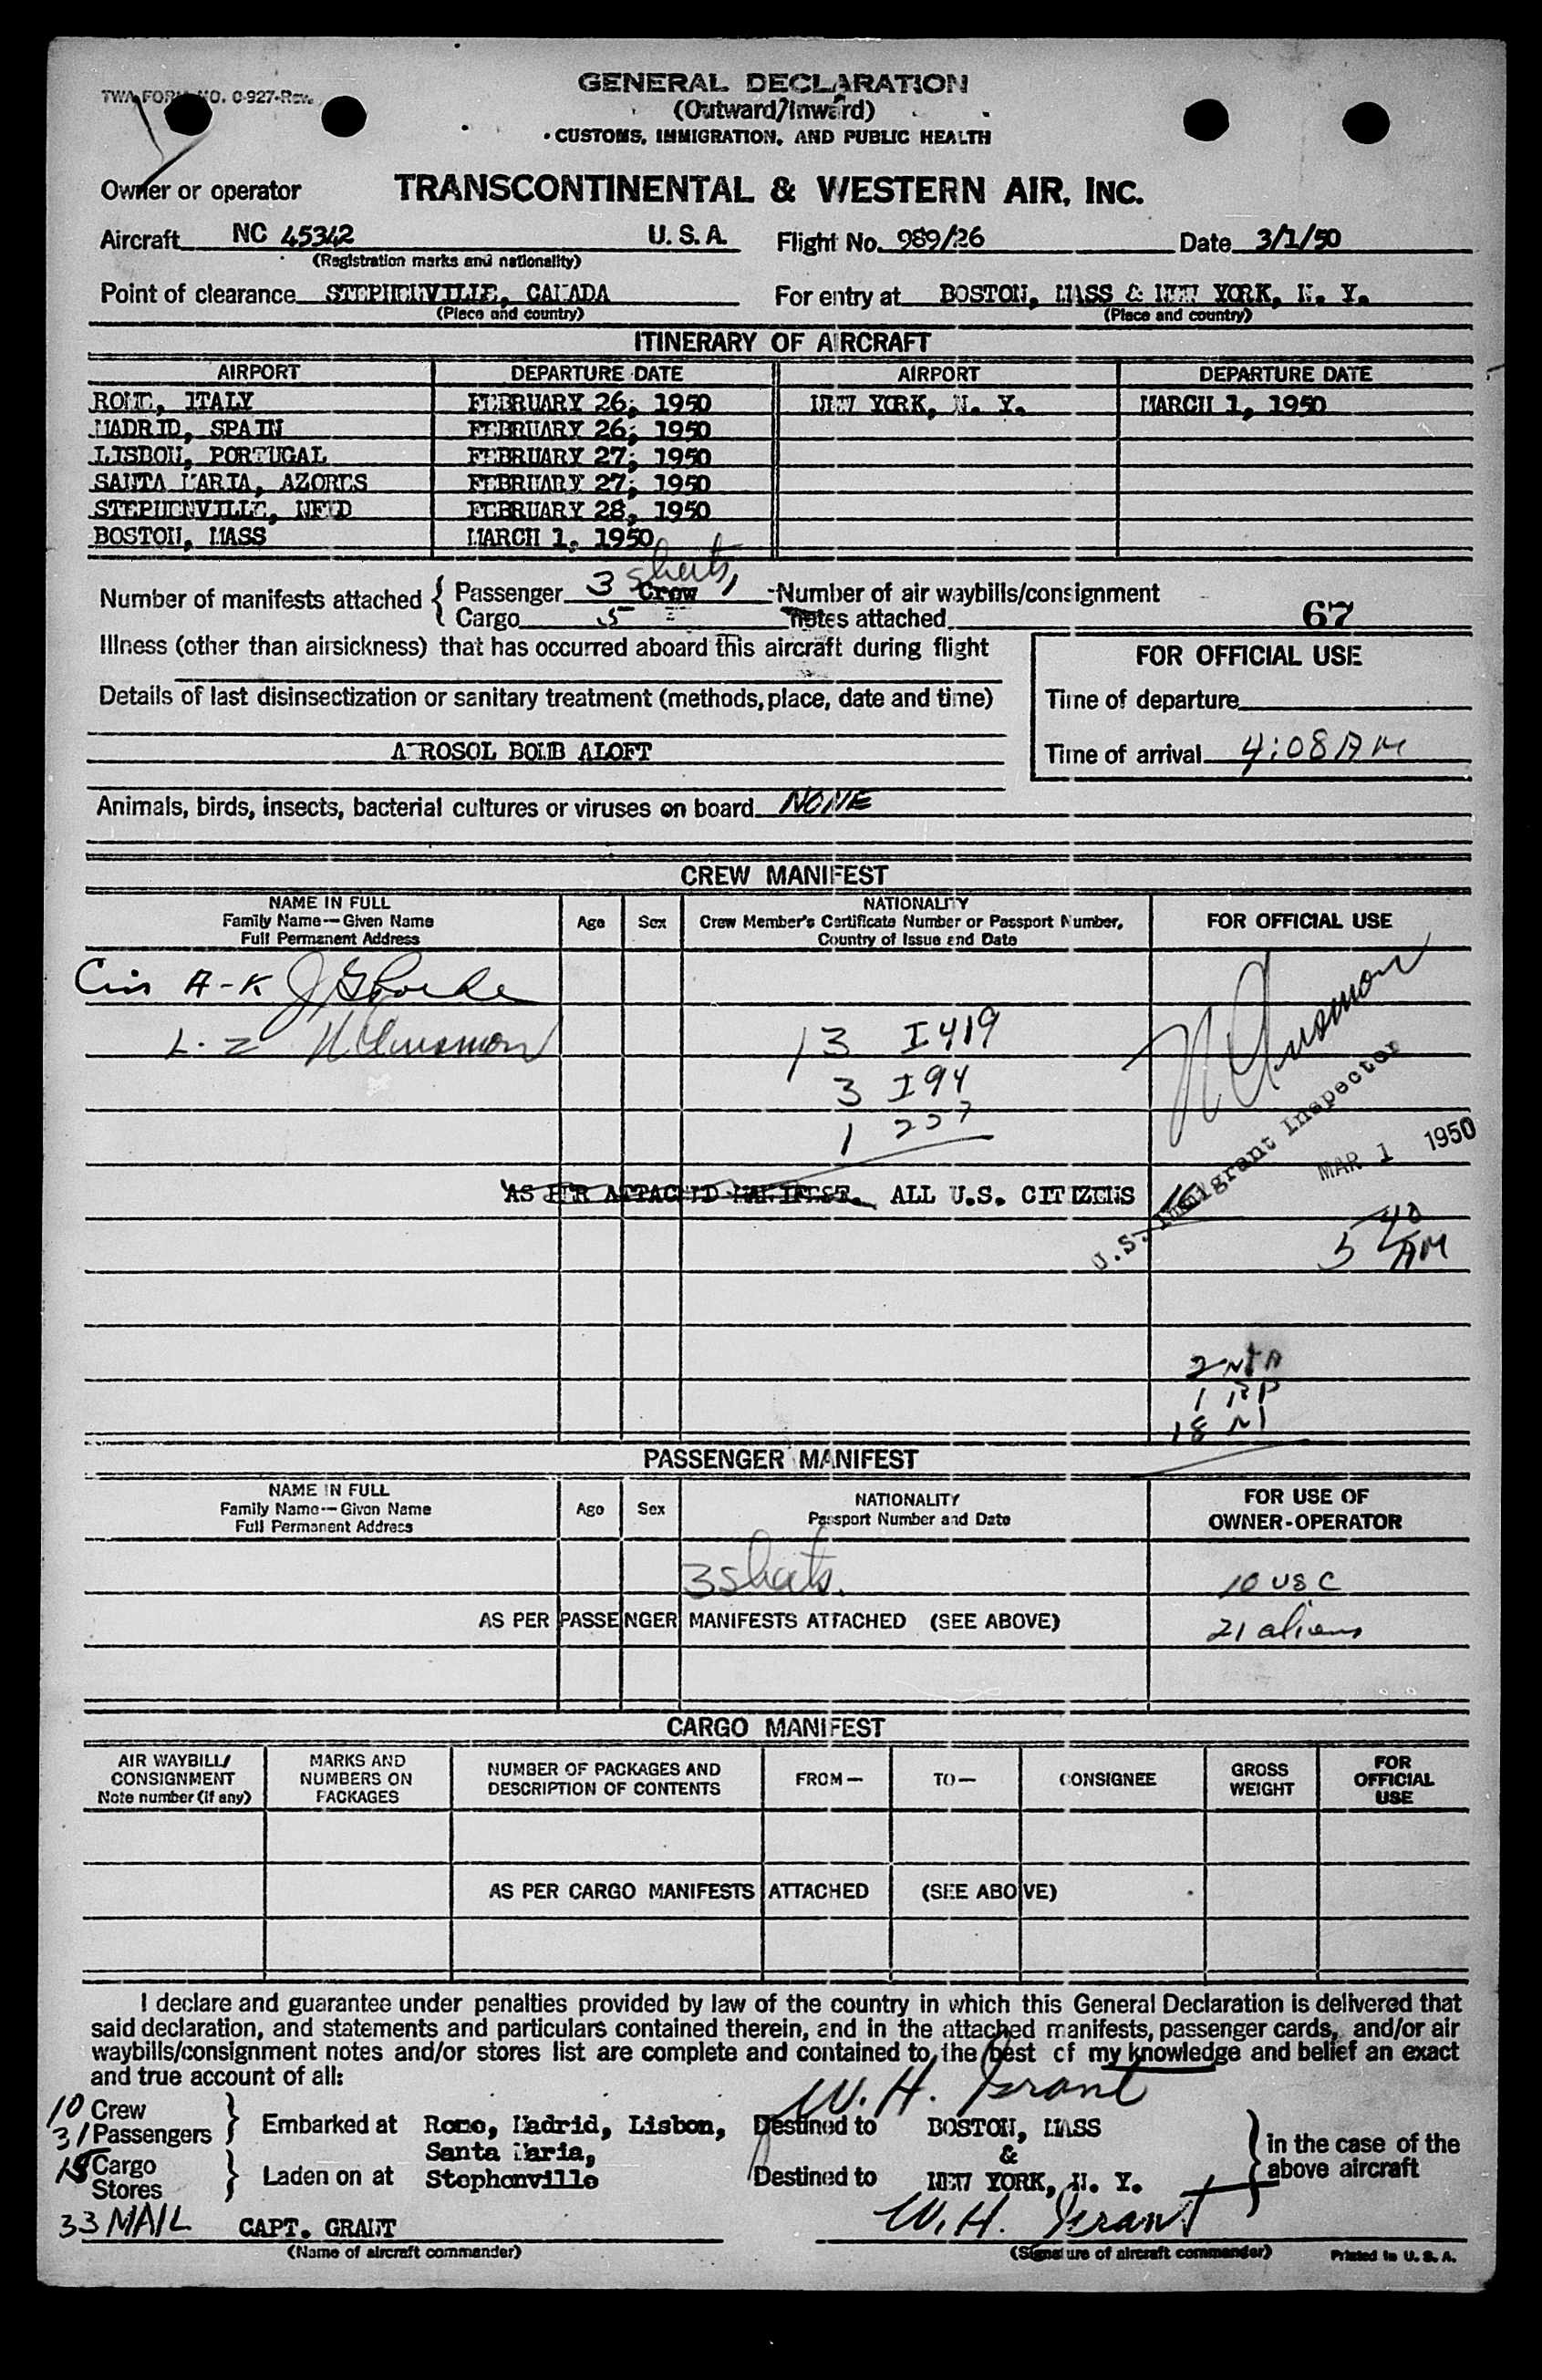 TWA FORM NO. 0-927-Rev.
GENERAL DECLARATION
(Outward/Inward)
CUSTOMS, IMMIGRATION, AND PUBLIC HEALTH
Owner or operator TRANSCONTINENTAL & WESTERN AIR, INC.
Aircraft NC 45342 U. S. A. Flight No. 989/26 Date 3/1/50
(Registration marks and nationality)
Point of clearance STEPHENVILLE, CANADA For entry at BOSTON, MASS & NEW YORK, N. Y.
(Place and country) (Place and country)
ITINERARY OF AIRCRAFT
AIRPORT DEPARTURE DATE AIRPORT DEPARTURE DATE
ROME, ITALY FEBRUARY 26, 1950 NEW YORK, N. Y. MARCH 1, 1950
MADRID, SPAIN FEBRUARY 26, 1950
LISBON, PORTUGAL FEBRUARY 27, 1950
SANTA MARIA, AZORES FEBRUARY 27, 1950
STEPHENVILLE, NFLD FEBRUARY 28, 1950
BOSTON, MASS MARCH 1, 1950
Number of manifests attached { Passenger 3 sheets Crew 1 Number of air waybills/consignment
Cargo 5 notes attached 67
Illness (other than airsickness) that has occurred aboard this aircraft during flight
FOR OFFICIAL USE
Details of last disinsectization or sanitary treatment (methods, place, date and time)
Time of departure
AEROSOL BOMB ALOFT
Time of arrival 4:08 AM
Animals, birds, insects, bacterial cultures or viruses on board NONE
CREW MANIFEST
NAME IN FULL
Family Name--Given Name
Full Permanent Address
Age Sex
NATIONALITY
Crew Member's Certificate Number or Passport Number,
Country of Issue and Date
FOR OFFICIAL USE
A-K
L-Z
13 I 419
3 I 94
1 257
U.S. Immigrant Inspector
MAR 1 1950
AS PER ATTACHED MANIFEST. ALL U.S. CITIZENS
5 40 AM
1 RP
18 NI
PASSENGER MANIFEST
NAME IN FULL
Family Name--Given Name
Full Permanent Address
Age Sex
NATIONALITY
Passport Number and Date
FOR USE OF
OWNER-OPERATOR
3 sheets. 10 USC
AS PER PASSENGER MANIFESTS ATTACHED (SEE ABOVE) 21 aliens
CARGO MANIFEST
AIR WAYBILL/
CONSIGNMENT
Note number (if any)
MARKS AND
NUMBERS ON
PACKAGES
NUMBER OF PACKAGES AND
DESCRIPTION OF CONTENTS
FROM— TO— CONSIGNEE
GROSS
WEIGHT
FOR
OFFICIAL
USE
AS PER CARGO MANIFESTS ATTACHED (SEE ABOVE)
I declare and guarantee under penalties provided by law of the country in which this General Declaration is delivered that
said declaration, and statements and particulars contained therein, and in the attached manifests, passenger cards, and/or air
waybills/consignment notes and/or stores list are complete and contained to the best of my knowledge and belief an exact
and true account of all:
W. H. Grant
10 Crew
31 Passengers } Embarked at Rome, Madrid, Lisbon, Destined to BOSTON, MASS
Santa Maria, &
15 Cargo
Stores } Laden on at Stephenville Destined to NEW YORK, N. Y.
in the case of the
above aircraft
33 MAIL CAPT. GRANT W. H. Grant
(Name of aircraft commander) (Signature of aircraft commander) Printed in U. S. A.